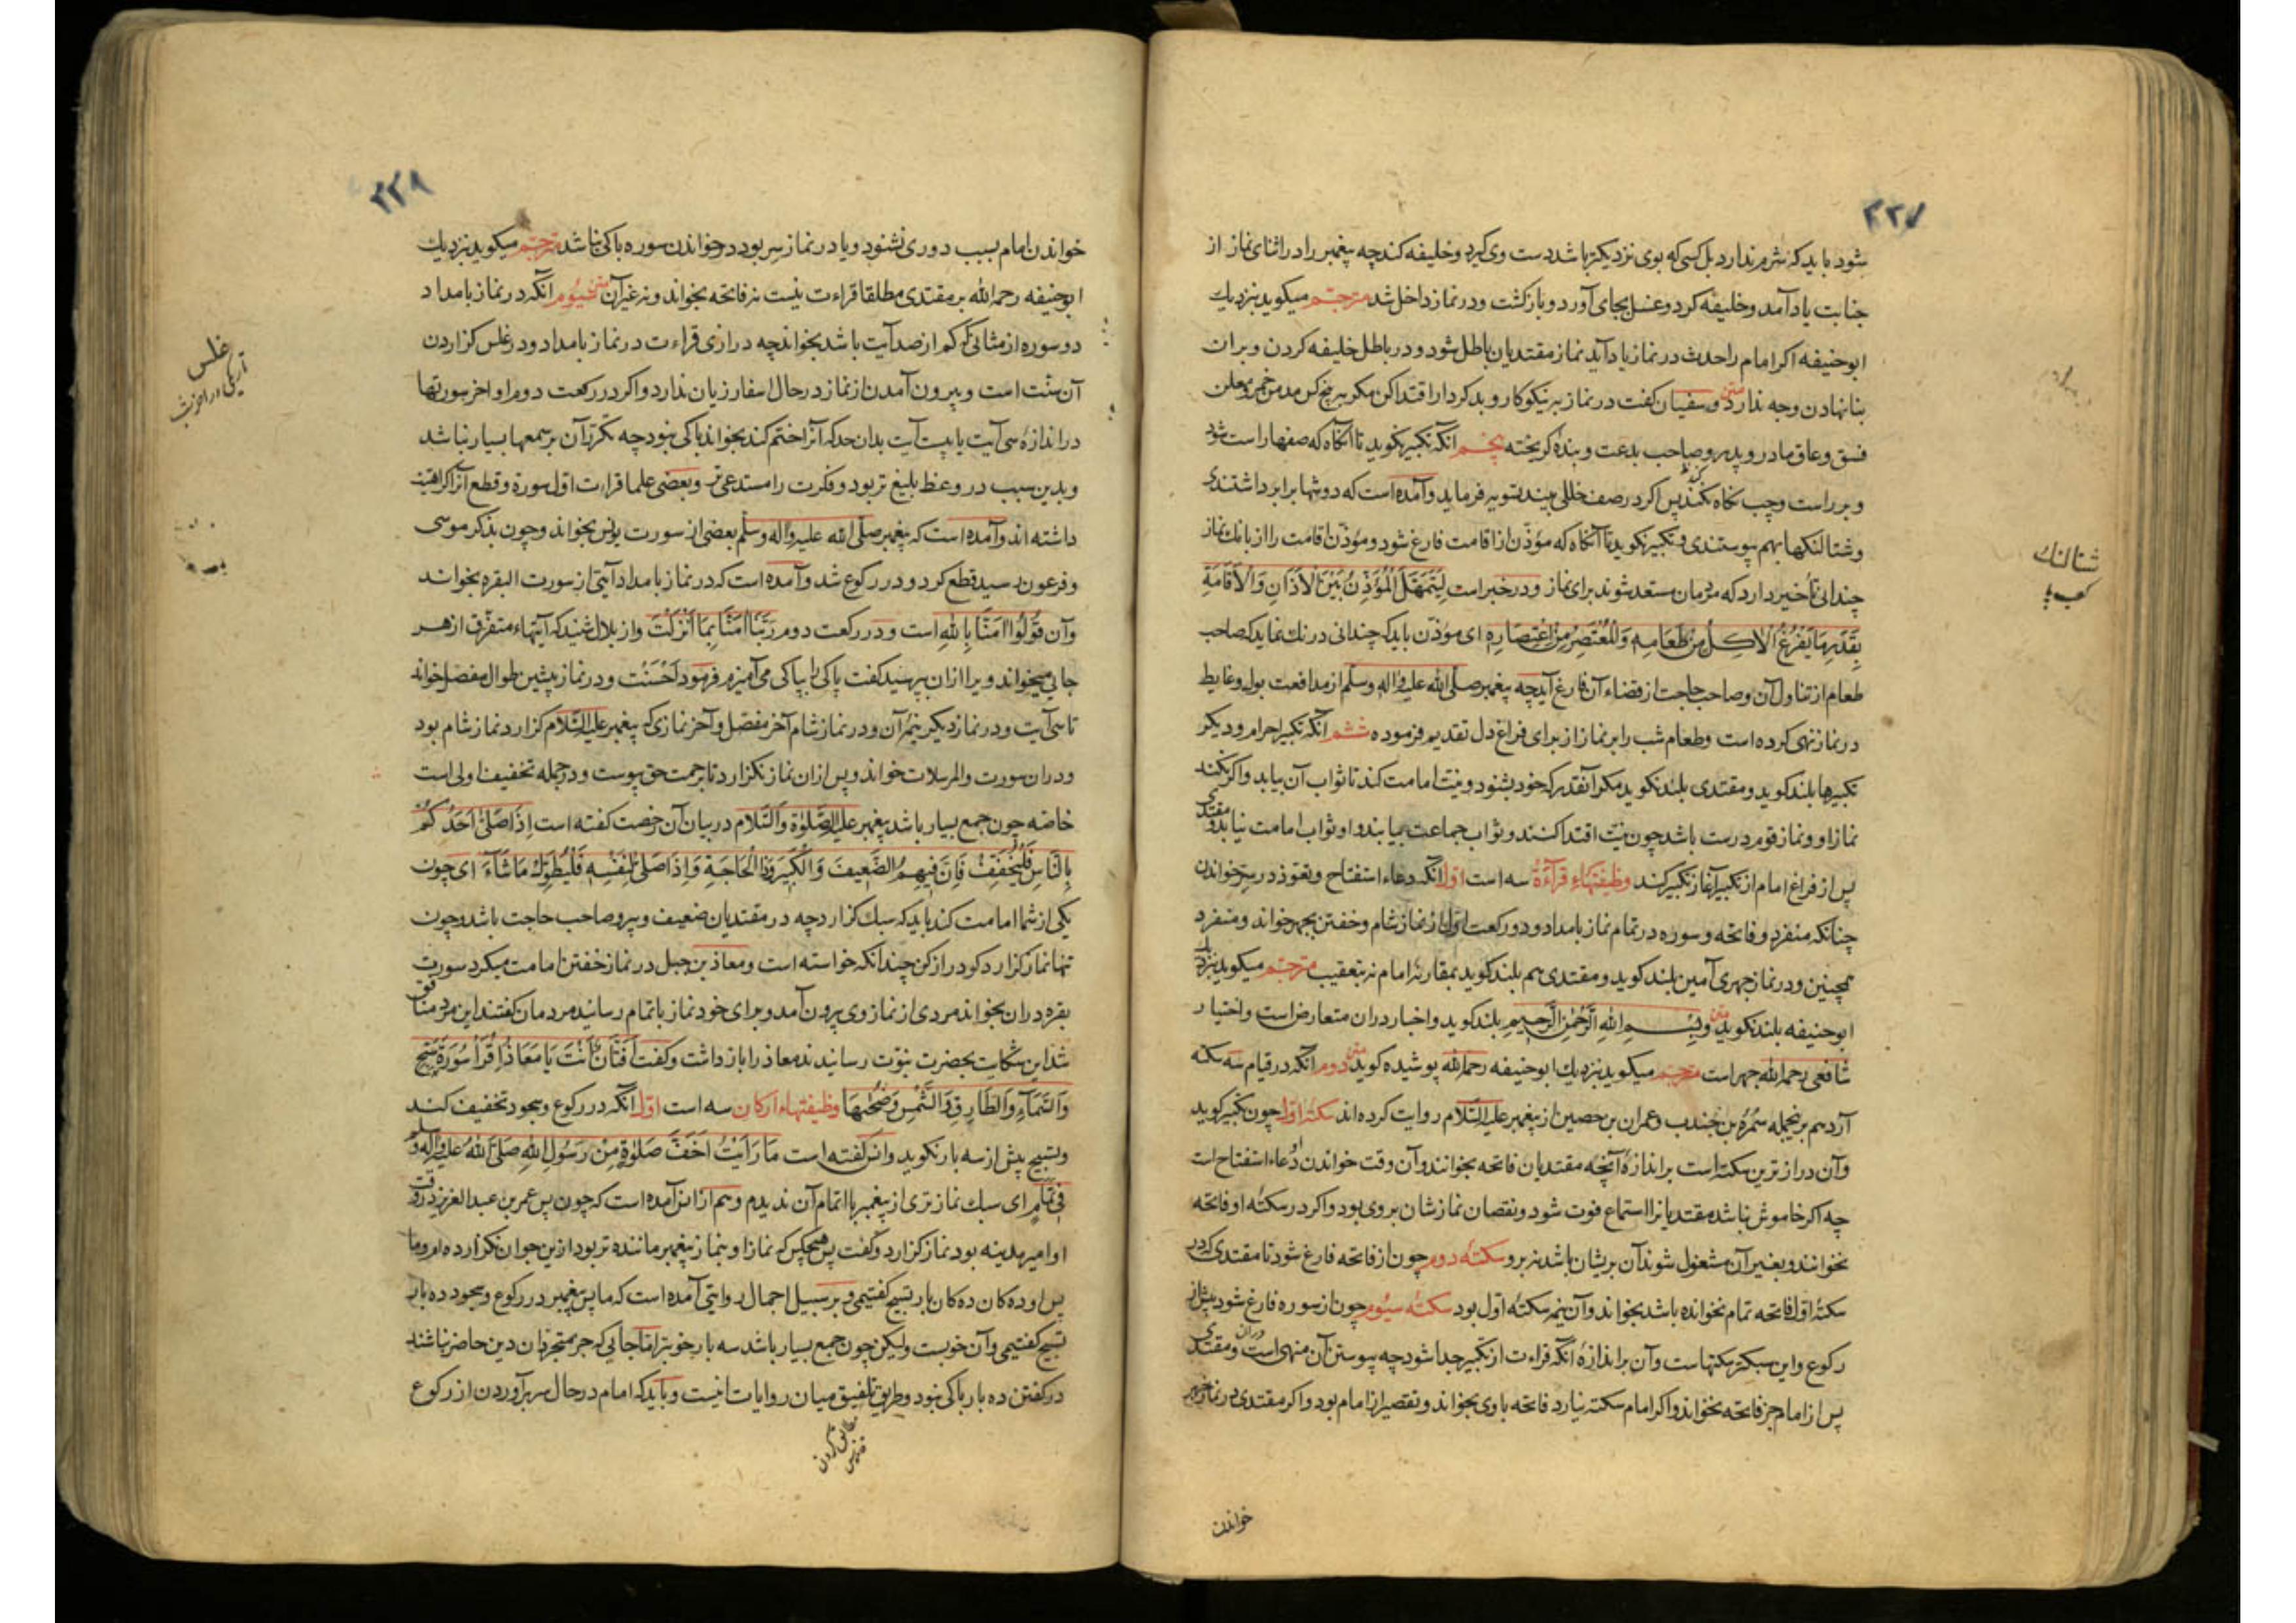 ۳۳۷
شود باید که شرم ندارد بل کسی که بوی نزدیکتر باشد دست وی گیرد و خلیفه کند چه پیغمبر را در اثنای نماز از
جنابت یاد آمد و خلیفه کرد و غسل بجای آورد و باز گشت و در نماز داخل شد مترجم میکوید نزدیك
ابوحنیفه اکر امام را حدث در نماز یاد آید نماز مقتدیان باطل شود و در باطل خلیفه کردن و بران
بنا نهادن وجه ندارد متن و سفیان کفت در نماز بر نیکوکار و بدکردار اقتدا کن مکر بر پنج کس مدمن خمر و معلن
فسق و عاق مادر و پدر و صاحب بدعت و بنده کریخته پنجم آنکه تکبیر نکوید تا آنکاه که صفها راست شود
و بر راست و چپ نکاه کند پس اکر در صف خللی بیند بتسویه فرماید و آمده است که دوشها برابر داشتندی
و شتالنکها بهم پیوستندی و تکبیر نکوید تا آنکاه که مؤذن از اقامت فارغ شود و مؤذن اقامت را از بانك نماز
چندانی تأخیر دارد که مردمان مستعد شوند برای نماز و در خبر است لِيَتَمَهَّلَ الْمُؤَذِّنُ بَيْنَ الْأَذَانِ وَالْأَقَامَةِ
بِقَدْرِ مَا يَفْرُغُ الْآكِلُ مِنْ طَعَامِهِ وَالْمُعْتَصِرُ مِنْ اِعْتِصَارِهِ ای مؤذن باید که چندانی درنك نماید که صاحب
طعام از تناول آن و صاحب حاجت از قضاء آن فارغ آید چه پیغمبر صلی الله علیه و اله و سلم از مدافعت بول و غایط
در نماز نهی کرده است و طعام شب را بر نماز از برای فراغ دل تقدیم فرموده ششم آنکه تکبیر احرام و دیکر
تکبیرها بلند کوید و مقتدی بلند نکوید مکر آنقدر که خود بشنود و نیت امامت کند تا ثواب آن بیابد و اکر نکند
نماز او و نماز قوم درست باشد چون نیت اقتدا کنند و ثواب جماعت بیابند و او ثواب امامت نیابد و مقتدی
پس از فراغ امام از تکبیر آغاز تکبیر کند وظیفتهاء قرآءة سه است اول آنکه دعاء استفتاح و تعوذ در سر خواندن
چنانکه منفرد و فاتحه و سوره در تمام نماز بامداد و دو رکعت اول از نماز شام و خفتن بجهر خواند و منفرد
همچنین و در نماز جهری آمین بلند کوید و مقتدی هم بلند کوید بمقارنه امام نه بتعقیب مترجم میکوید نزدیك
ابوحنیفه بلند نکوید متن و بسم الله الرحمن الرحیم بلند کوید و اخبار دران متعارض است و اختیار
شافعی رحمه الله جهر است مترجم میکوید نزدیك ابوحنیفه رحمه الله پوشیده کوید متن دوم آنکه در قیام سه سکته
آرد هم برینجمله سمرة بن جندب و عمران بن حصین از پیغمبر علیه السلام روایت کرده اند سکته اول چون تکبیر کوید
و آن درازترین سکته است بر اندازه آنچه مقتدیان فاتحه بخوانند و آن وقت خواندن دعاء استفتاح است
چه اکر خاموش نباشد مقتدیانرا استماع فوت شود و نقصان نمازشان بر وی بود و اکر در سکته او فاتحه
نخوانند و بغیر آن مشغول شوند آن بریشان باشد نه برو سکته دوم چون از فاتحه فارغ شود تا مقتدی که در
سکته اول فاتحه تمام نخوانده باشد بخواند و آن نیمه سکته اول بود سکته سیوم چون از سوره فارغ شود پیش از
رکوع و این سبکتر سکتهاست و آن بر اندازه آنکه قراءت از تکبیر جدا شود چه پیوستن آن منهی است و مقتدی
پس از امام جز فاتحه نخواند و اکر امام سکته نیارد فاتحه با وی بخواند و تقصیر از امام بود و اکر مقتدی در نماز
خواندن
شتالنك
۳۳۸
خواندن امام بسبب دوری نشنود و یا در نماز سر بود در خواندن سوره باکی نباشد مترجم میکوید نزدیك
ابوحنیفه رحمه الله بر مقتدی مطلقا قراءت نیست نه فاتحه بخواند و نه غیر آن متن سیوم آنکه در نماز بامداد
دو سوره از مثانی که کم از صد آیت باشد بخواند چه درازی قراءت در نماز بامداد و در غلس کزاردن
آن سنت است و بیرون آمدن از نماز در حال اسفار زیان ندارد و اکر در رکعت دوم اواخر سورتها
در اندازه سی آیت یا بیست آیت بدان حد که آنرا ختم کند بخواند باکی نبود چه تکرر آن بر سمعها بسیار نباشد
و بدین سبب در وعظ بلیغ تر بود و فکرت را مستدعی تر و بعضی علما قراءت اول سورة و قطع آنرا کراهیت
داشته اند و آمده است که پیغمبر صلی الله علیه و اله و سلم بعضی از سورت یونس بخواند و چون بذکر موسی
و فرعون رسید قطع کرد و در رکوع شد و آمده است که در نماز بامداد آیتی از سورت البقره بخواند
و آن قُولُوا آمَنَّا بِاللَّهِ است و در رکعت دوم رَبَّنَا آمَنَّا بِمَا أَنْزَلْتَ و از بلال شنید که آیتهاء متفرق از هر
جایی میخواند ویرا ازان بپرسید کفت پاکی را بپاکی می آمیزم فرمود اَحْسَنْتَ و در نماز پیشین طوال مفصل خواند
تا سی آیت و در نماز دیکر نیمه آن و در نماز شام آخر مفصل و آخر نمازی که پیغمبر علیه السلام کزارد نماز شام بود
و دران سورت والمرسلات خواند و پس ازان نماز نکزارد تا برحمت حق پیوست و در جمله تخفیف اولی است
خاصه چون جمع بسیار باشد پیغمبر علیه الصلوة والسلام در بیان آن رخصت کفته است اِذَا صَلَّى اَحَدُكُمْ
بِالنَّاسِ فَلْيُخَفِّفْ فَاِنَّ فِيهِمُ الضَّعِيفَ وَالْكَبِيرَ وَذَا الْحَاجَةِ وَاِذَا صَلَّى لِنَفْسِهِ فَلْيُطَوِّلْ مَا شَاءَ ای چون
یکی از شما امامت کند باید که سبك کزارد چه در مقتدیان ضعیف و پیر و صاحب حاجت باشد و چون
تنها نماز کزارد کو دراز کن چندانکه خواسته است و معاذ بن جبل در نماز خفتن امامت میکرد سورت
بقره دران بخواند مردی از نماز وی بیرون آمد و برای خود نماز باتمام رسانید مردمان کفتند این مرد منافق
شد این شکایت بحضرت نبوت رسانیدند معاذ را باز داشت و کفت اَفَتَّانٌ اَنْتَ يَا مَعَاذُ اِقْرَأْ سُورَةَ سَبِّحْ
وَالسَّمَاءِ وَالطَّارِقِ وَالشَّمْسِ وَضُحٰيهَا وظیفتهاء ارکان سه است اول آنکه در رکوع و سجود تخفیف کند
و تسبیح بیش از سه بار نکوید و انس کفته است مَا رَاَيْتُ اَخَفَّ صَلٰوةٍ مِنْ رَسُولِ اللهِ صَلَّى اللهُ عَلَيْهِ وَاٰلِهِ وَسَلَّم
فِي تَمَامٍ ای سبك نمازتری از پیغمبر با اتمام آن ندیدم و هم از انس آمده است که چون پس عمر بن عبد العزیز در وقت
او امیر مدینه بود نماز کزارد و کفت پس هیچکس که نماز او بنماز پیغمبر ماننده تر بود ازین جوان نکزارده ام و ما
پس او ده کان ده کان بار تسبیح کفتیمی و بر سبیل اجمال روایتی آمده است که ما پس پیغمبر در رکوع و سجود ده بار
تسبیح کفتیمی و آن خوبست ولیکن چون جمع بسیار باشد سه بار خوبتر اما جایی که جز متجردان دین حاضر نباشند
در کفتن ده بار باکی نبود و طریق تلفیق میان روایات اینست و باید که امام در حال سر بر آوردن از رکوع
غلس
تاریکی در آخر شب